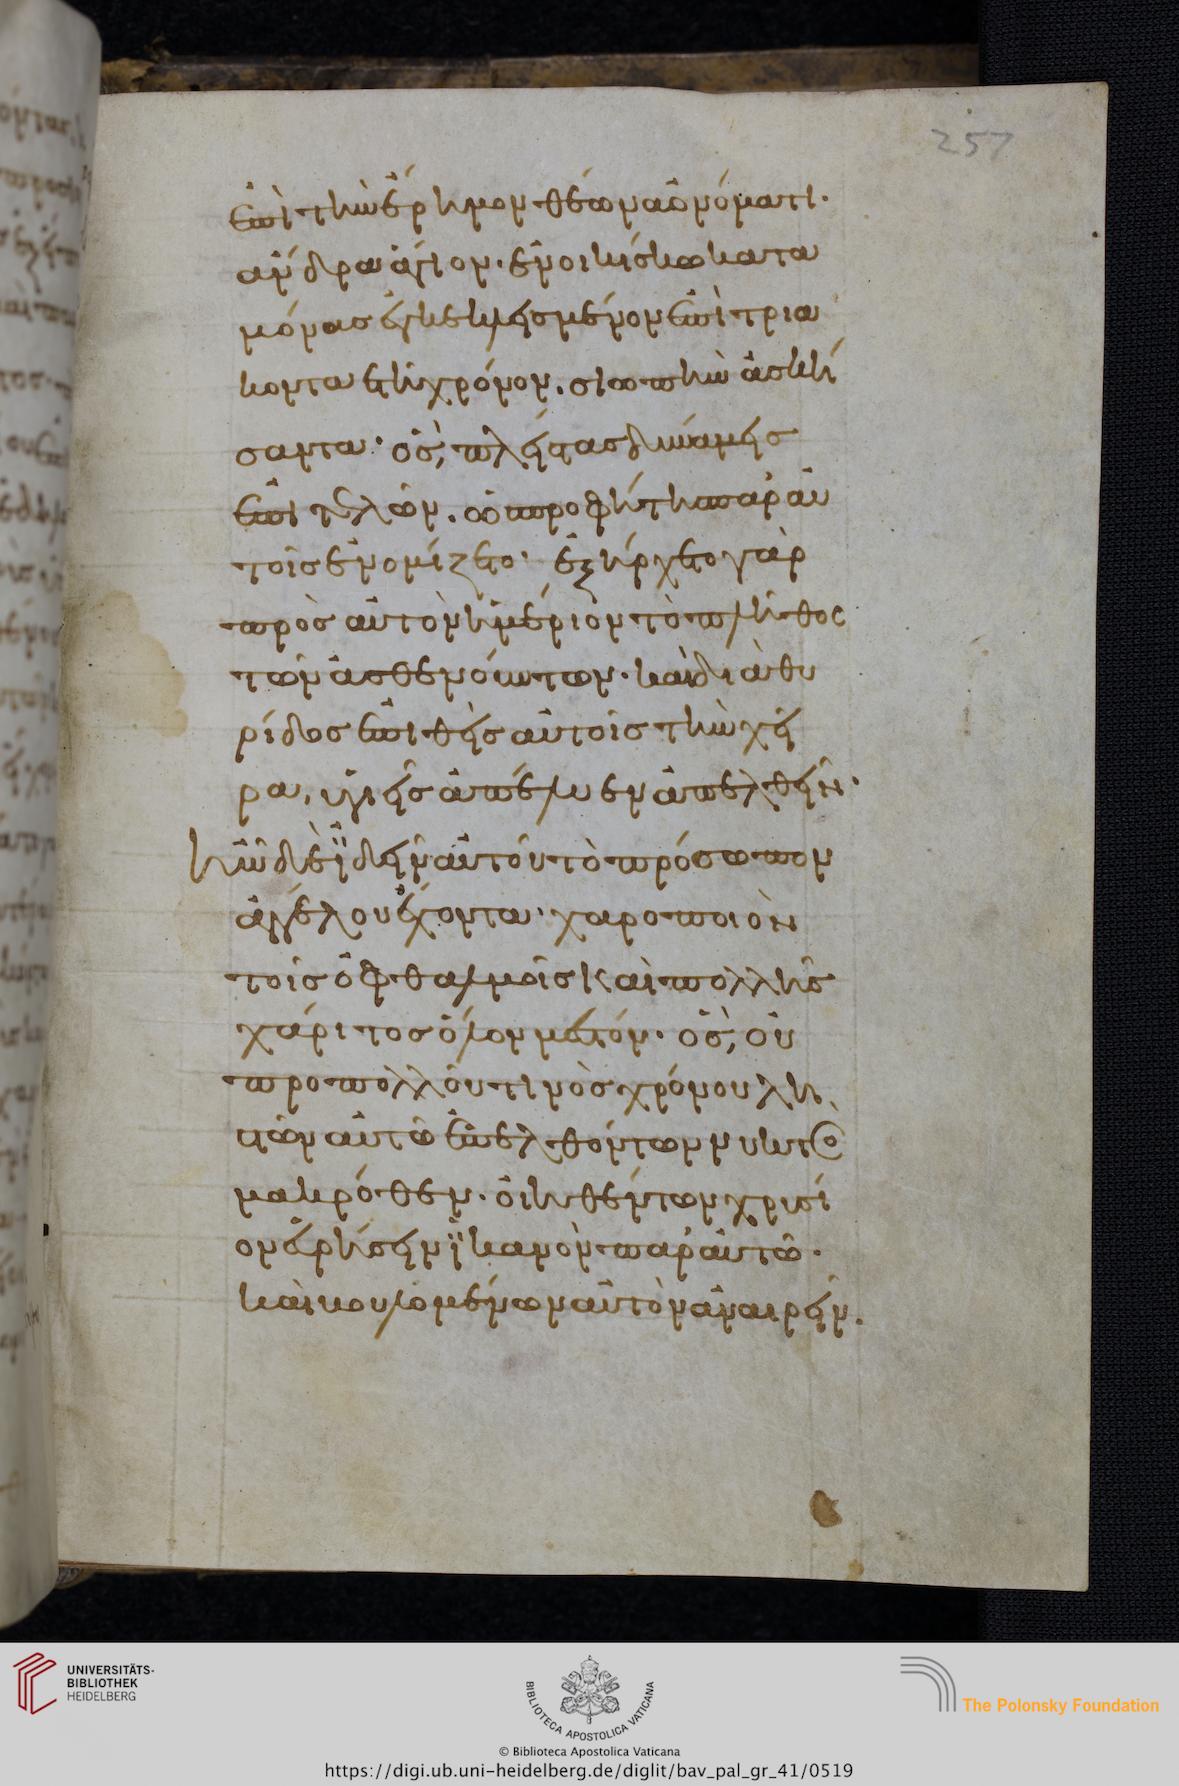 257
ἐπὶ τὴν ἔρημον θέωνα ὀνόματι·
ἄνδρα ἅγιον· ἐν οικίσκω κατα
μόνας ἐγκεκλεισμένον ἐπὶ τρια
κοντα ἔτη χρόνον. σιωπὴν ἀσκή
σαντα· ὃς, πλείστας δυνάμεις
ἐπιτελῶν. ὁ προφήτης παρ' αὐ
τοῖς ἐνομίζετο· ἐξήρχετο γὰρ
πρὸς αὐτὸν ἡμέριον τὸ πλῆθος
τῶν ἀσθενούντων· καὶ διὰ θυ
ρίδος ἐπιθεὶς αὐτοῖς τὴν χεῖ
ρα, ὑγιεῖς ἀπέλυεν ἀπελθεῖν·
ἦν δὲ ἰδεῖν αὐτοῦ τὸ πρόσωπον
ἀγγέλου ἔχοντα· χαροποιὸν
τοῖς ὀφθαλμοῖς καὶ πολλῆς
χάριτος ὅλον μεστόν· ὃς, οὐ
προπολλοῦ τινὸς χρόνου λη
στῶν αὐτῶ ἐπελθόντων νυκτὸς
μακρόθεν· οἰηθέντων χρυσί
ον εὑρήσειν ἱκανὸν παρ' αὐτῶ·
καὶ βουλομένων αὐτὸν ἀναιρεῖν.
UNIVERSITÄTS-
BIBLIOTHEK
HEIDELBERG
BIBLIOTECA APOSTOLICA VATICANA
© Biblioteca Apostolica Vaticana
The Polonsky Foundation
https://digi.ub.uni-heidelberg.de/diglit/bav_pal_gr_41/0519